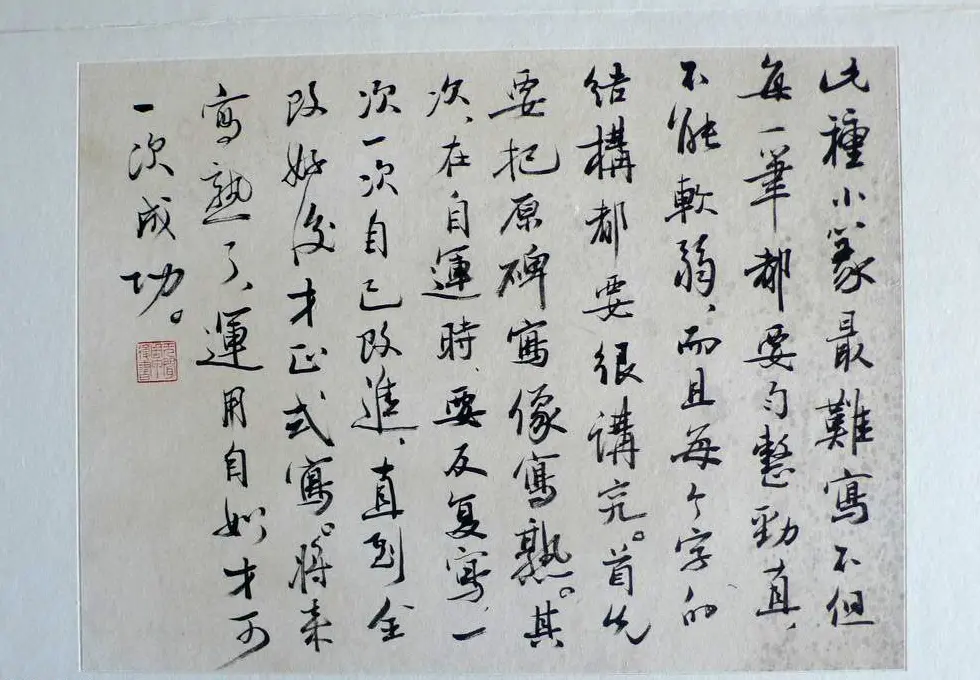 此種小篆最難寫不但
每一筆都要勻整勁直、
不能軟弱、而且每个字的
结構都要很講究。首先
要把原碑寫像寫熟。其
次、在自運時、要反复寫、一
次一次自己改進、直到全
改好後才正式寫。將来
寫熟了、運用自如才可
一次成功。